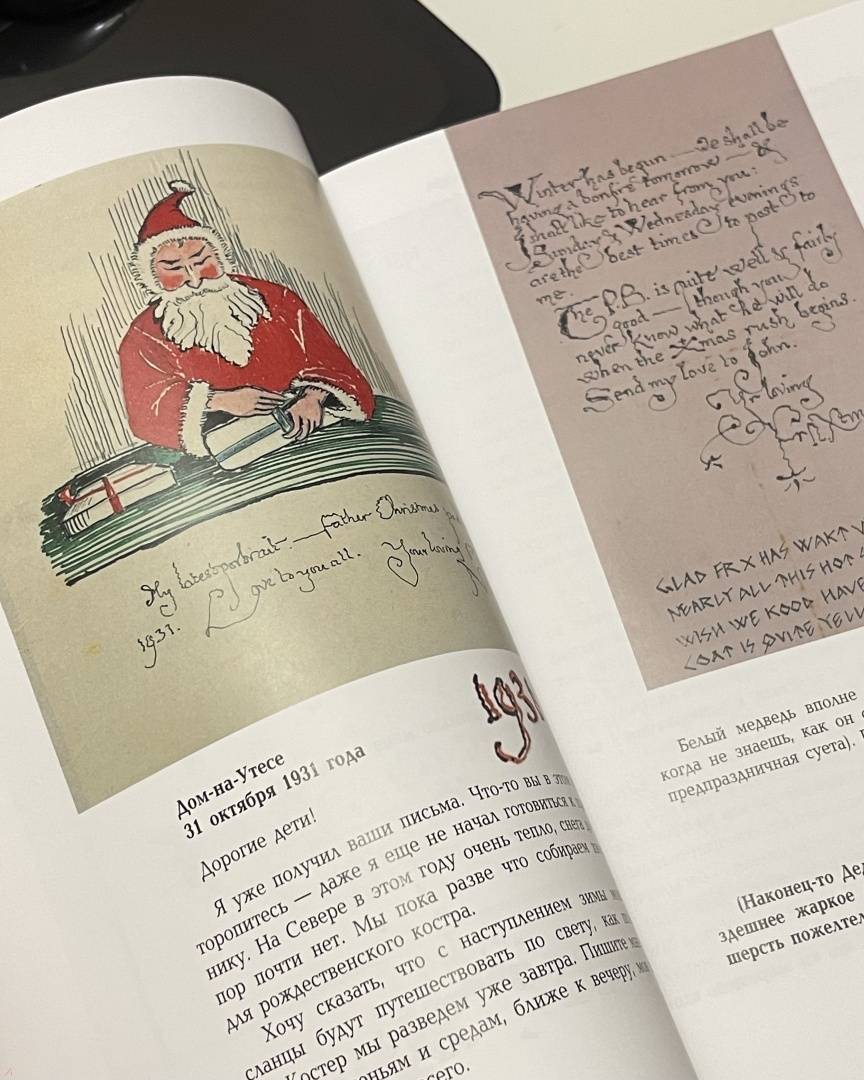 My latest portrait:— Father Christmas
1931. Love to you all. Your loving
1931
Дом-на-Утесе
31 октября 1931 года
Дорогие дети!
Я уже получил ваши письма. Что-то вы в
торопитесь — даже я еще не начал готовиться к
нику. На Севере в этом году очень тепло, снега
пор почти нет. Мы пока разве что собираем
для рождественского костра.
Хочу сказать, что с наступлением зимы
сланцы будут путешествовать по свету, как
Костер мы разведем уже завтра. Пишите
еньям и средам, ближе к вечеру,
сего.
Winter has begun — We shall be
having a bonfire tomorrow — &
I shall like to hear from you:
Sunday & Wednesday evenings
are the best times to post to
me.
The P.B. is quite well & fairly
good — (though you
never know what he will do
when the Xmas rush begins.
Send my love to John.
Yr loving
GLAD FR X HAS WAKT
NEARLY ALL THIS HOT
WISH WE KOOD HAVE
COAT IS QUITE YELL
Белый медведь вполне
когда не знаешь, как он
предпраздничная суета).
(Наконец-то Дед
здешнее жаркое
шерсть пожелтел